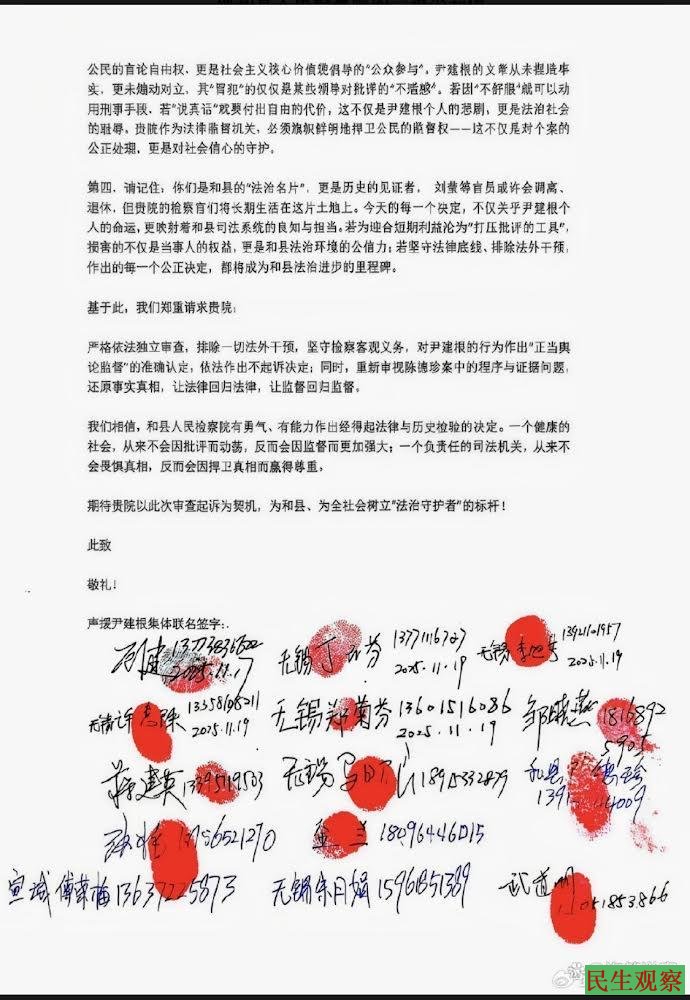 公民的言论自由权、更是社会主义核心价值观倡导的“公众参与”。尹建根的文章从未捏造事
实，更未煽动对立，其“冒犯”的仅仅是某些领导对批评的“不适感”。若因“不舒服”就可以动
用刑事手段、若“说真话”就要付出自由的代价，这不仅是尹建根个人的悲剧，更是法治社会
的耻辱。贵院作为法律监督机关，必须旗帜鲜明地捍卫公民的监督权——这不仅是对个案的
公正处理，更是对社会信心的守护。
第四、请记住：你们是和县的“法治名片”，更是历史的见证者。 刘蕾等官员或许会调离、
退休，但贵院的检察官们将长期生活在这片土地上。今天的每一个决定，不仅关乎尹建根个
人的命运，更映射着和县司法系统的良知与担当。若为迎合短期利益沦为“打压批评的工具”，
损害的不仅是当事人的权益，更是和县法治环境的公信力；若坚守法律底线、排除法外干预，
作出的每一个公正决定，都将成为和县法治进步的里程碑。
基于此，我们郑重请求贵院：
严格依法独立审查，排除一切法外干预，坚守检察客观义务，对尹建根的行为作出“正当舆
论监督”的准确认定，依法作出不起诉决定；同时，重新审视陈德珍案中的程序与证据问题，
还原事实真相，让法律回归法律，让监督回归监督。
我们相信，和县人民检察院有勇气、有能力作出经得起法律与历史检验的决定。一个健康的
社会，从来不会因批评而动荡，反而会因监督而更加强大；一个负责任的司法机关，从来不
会畏惧真相，反而会因捍卫真相而赢得尊重，
期待贵院以此次审查起诉为契机，为和县、为全社会树立“法治守护者”的标杆！
此致
敬礼！
声援尹建根集体联名签字：.
2025.11.17
无锡丁 芬 13771116727
2025.11.19
无锡 1392101957
2025.11.19
无锡许
2025.11.19
无锡郑菊芬 13601516086
2025.11.19
邹晓燕 1816892
5905
蒋建英 1395119503
无锡马 18915332879
和县
金兰 18096446015
宣城 傅菊梅 13637225873
无锡朱月娟 15961851389
武道
民生观察